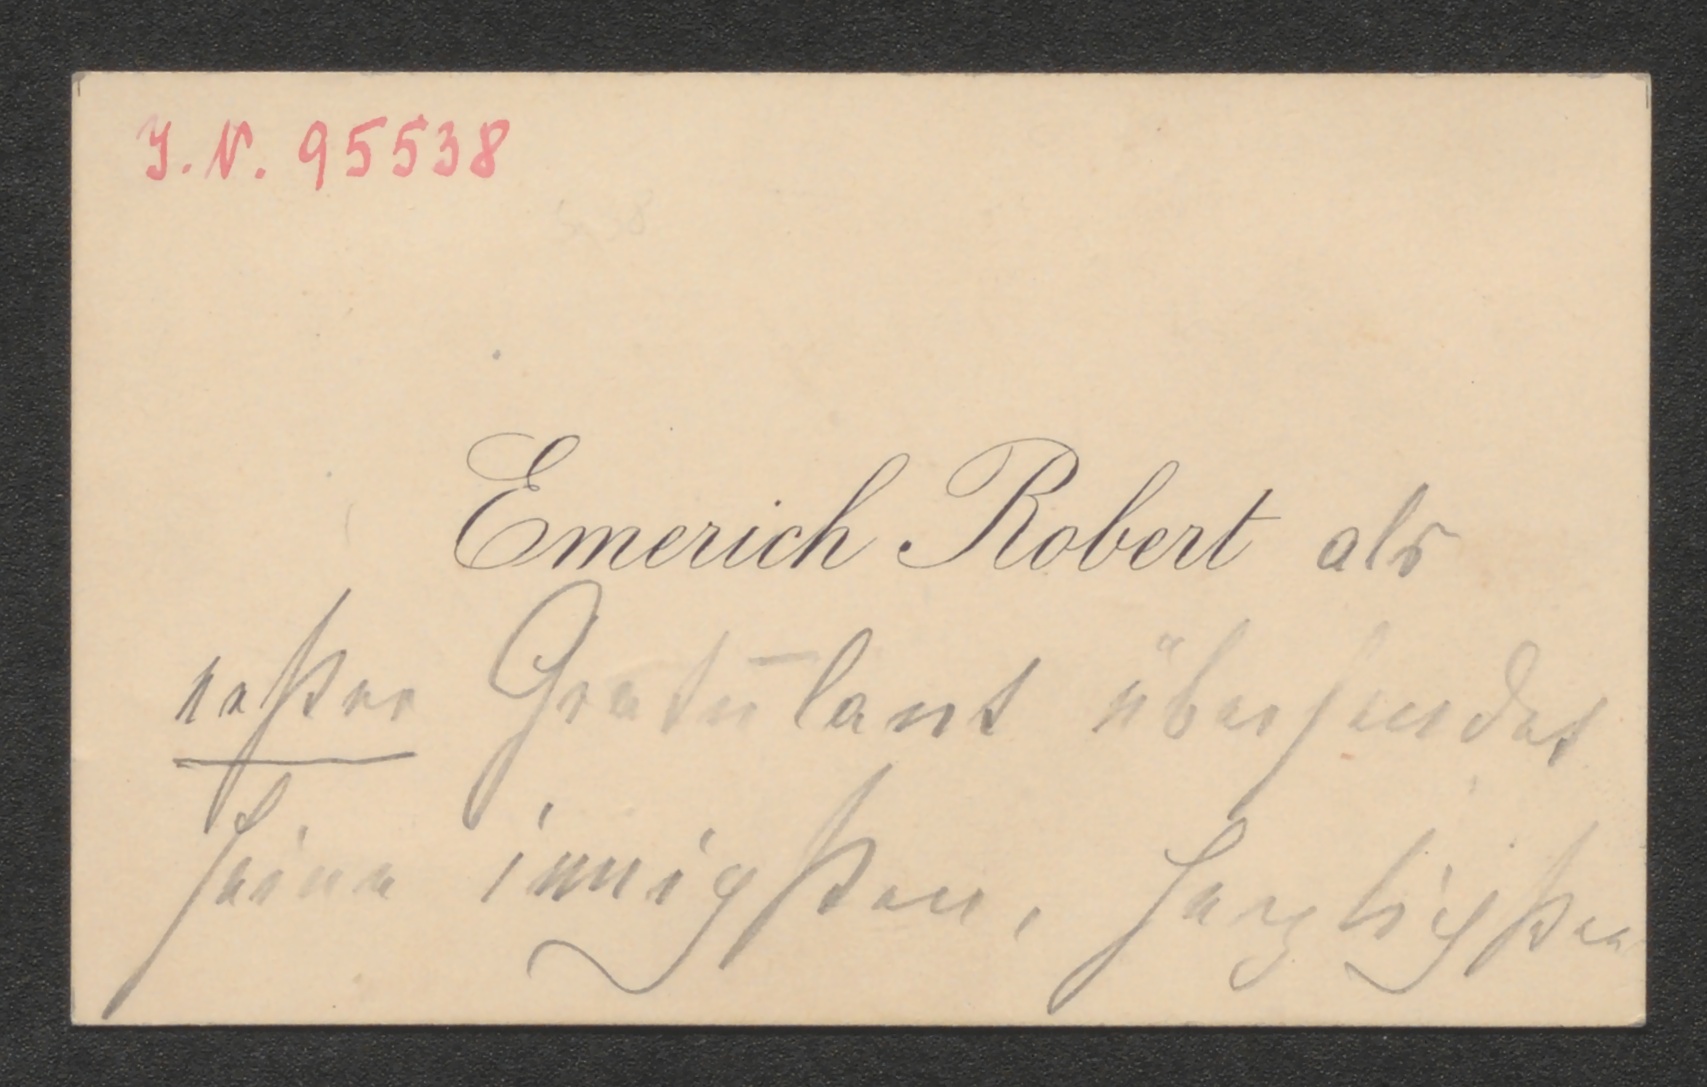 J.N. 95538
Emerich Robert als
erster Gratulant übersendet
seine innigsten, herzlichsten